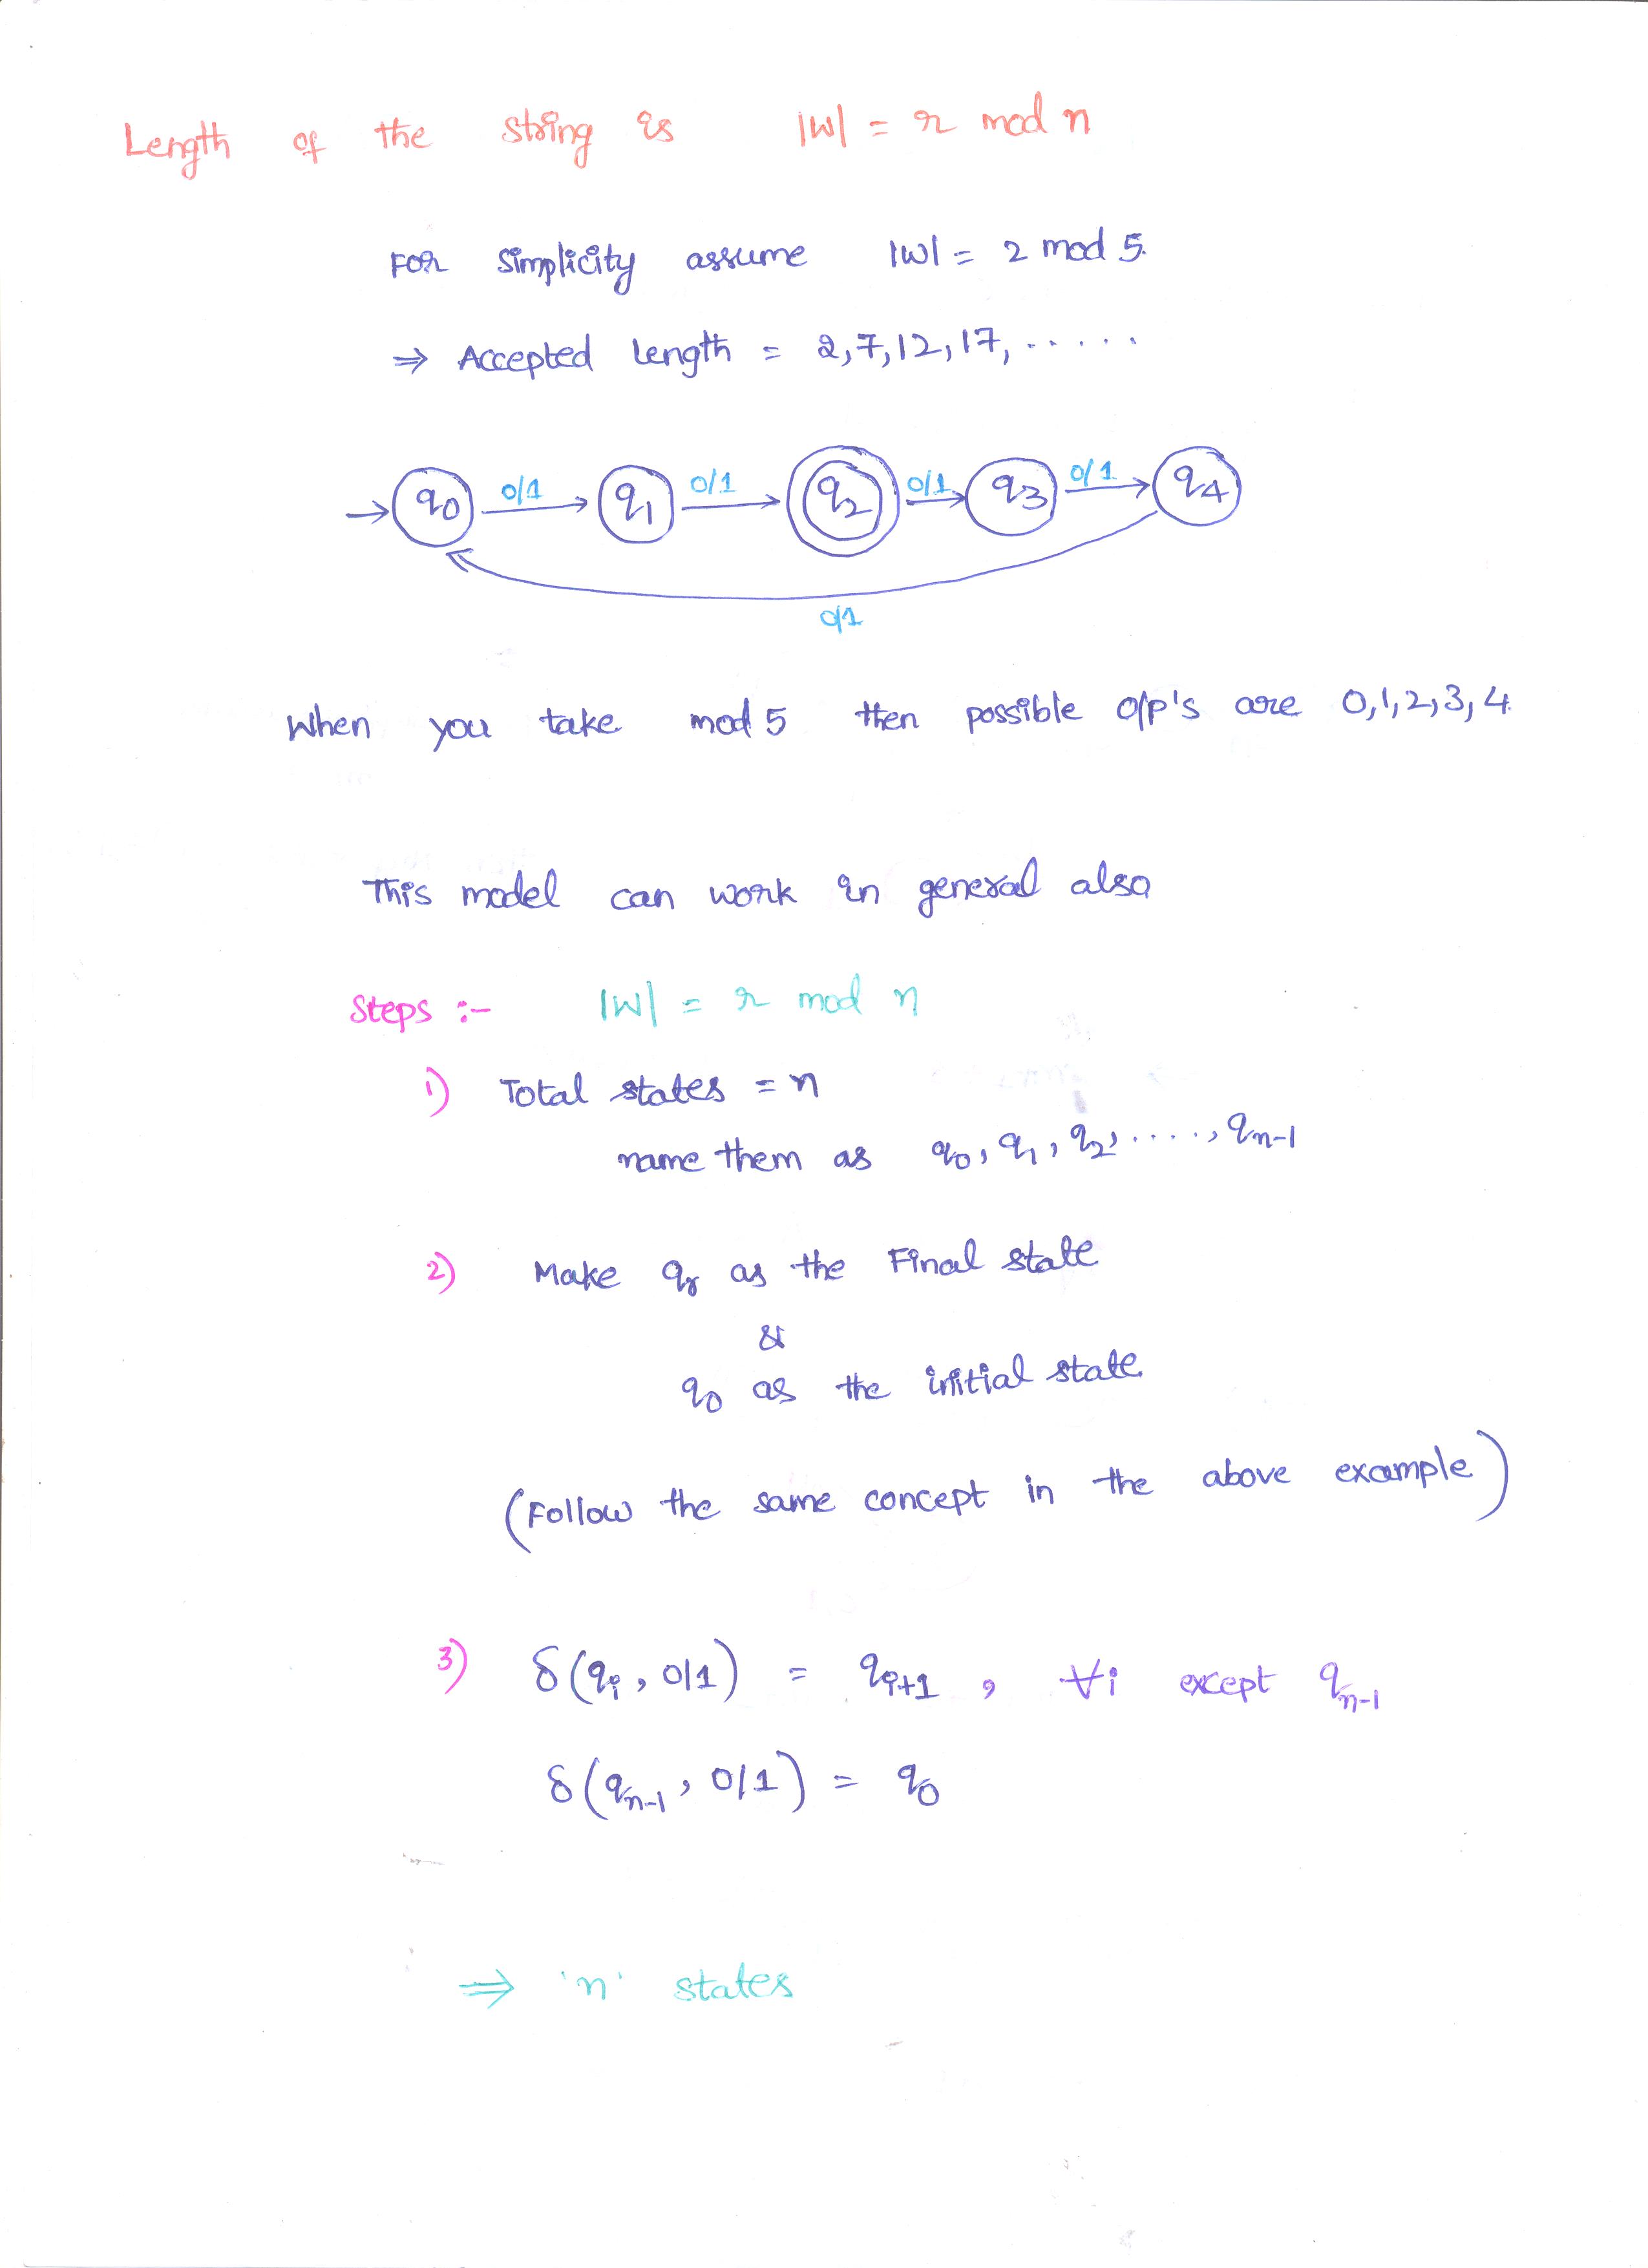 Length of the string is |W| = r mod n
For simplicity assume |W| = 2 mod 5.
⇒ Accepted length = 2,7,12,17, .....
→ q0 0/1 q1 0/1 q2 0/1 q3 0/1 q4
0/1
When you take mod 5 then possible o/p's are 0,1,2,3,4.
This model can work in general also
Steps :- |W| = r mod n
1) Total states = n
name them as q0, q1, q2, ....., qn-1
2) Make qr as the Final state
&
q0 as the initial state.
(Follow the same concept in the above example)
3) δ(qi, 0/1) = qi+1 , ∀i except qn-1
δ(qn-1, 0/1) = q0
⇒ 'n' states